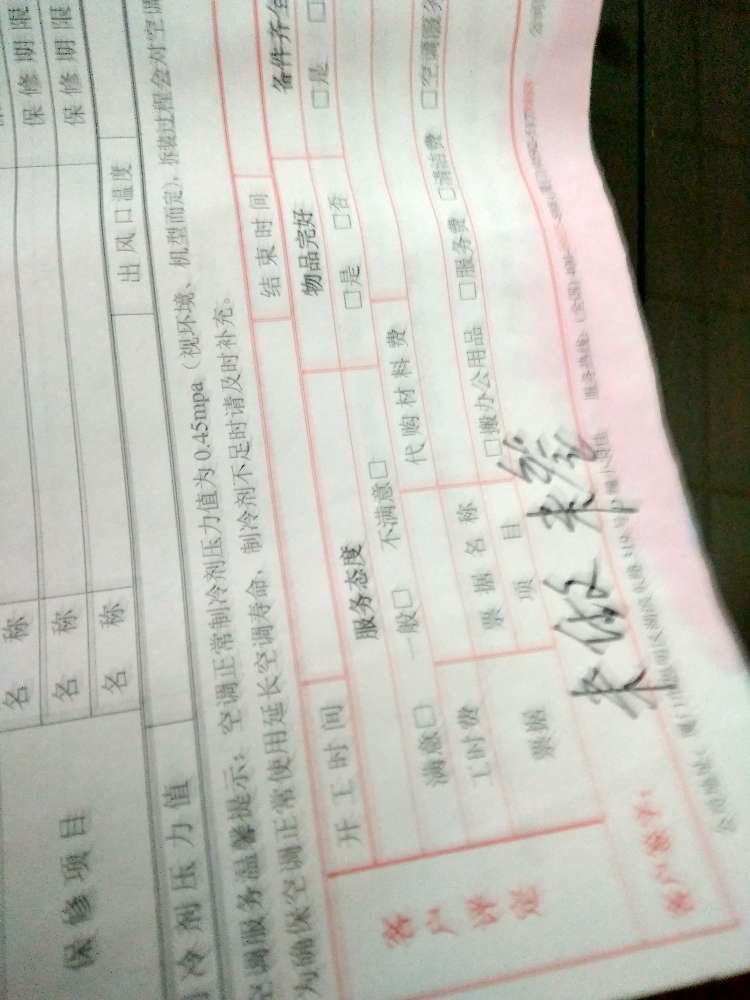 保修期限
保修期限
名 称
名 称
名 称
保修项目
冷剂压力值
出风口温度
空调服务温馨提示：空调正常制冷剂压力值为0.45mpa（视环境、机型而定），拆装过程会对空调
为确保空调正常使用延长空调寿命，制冷剂不足时请及时补充。
开工时间
结束时间
服务态度
物品完好
备件齐全
满意□ 一般□ 不满意□
□是 □否
□是 □
客户评定
工时费
代购材料费
票据
票据名称
项目
□搬办公用品 □服务费 □清洁费 □空调服务
客户签字：
未做 未